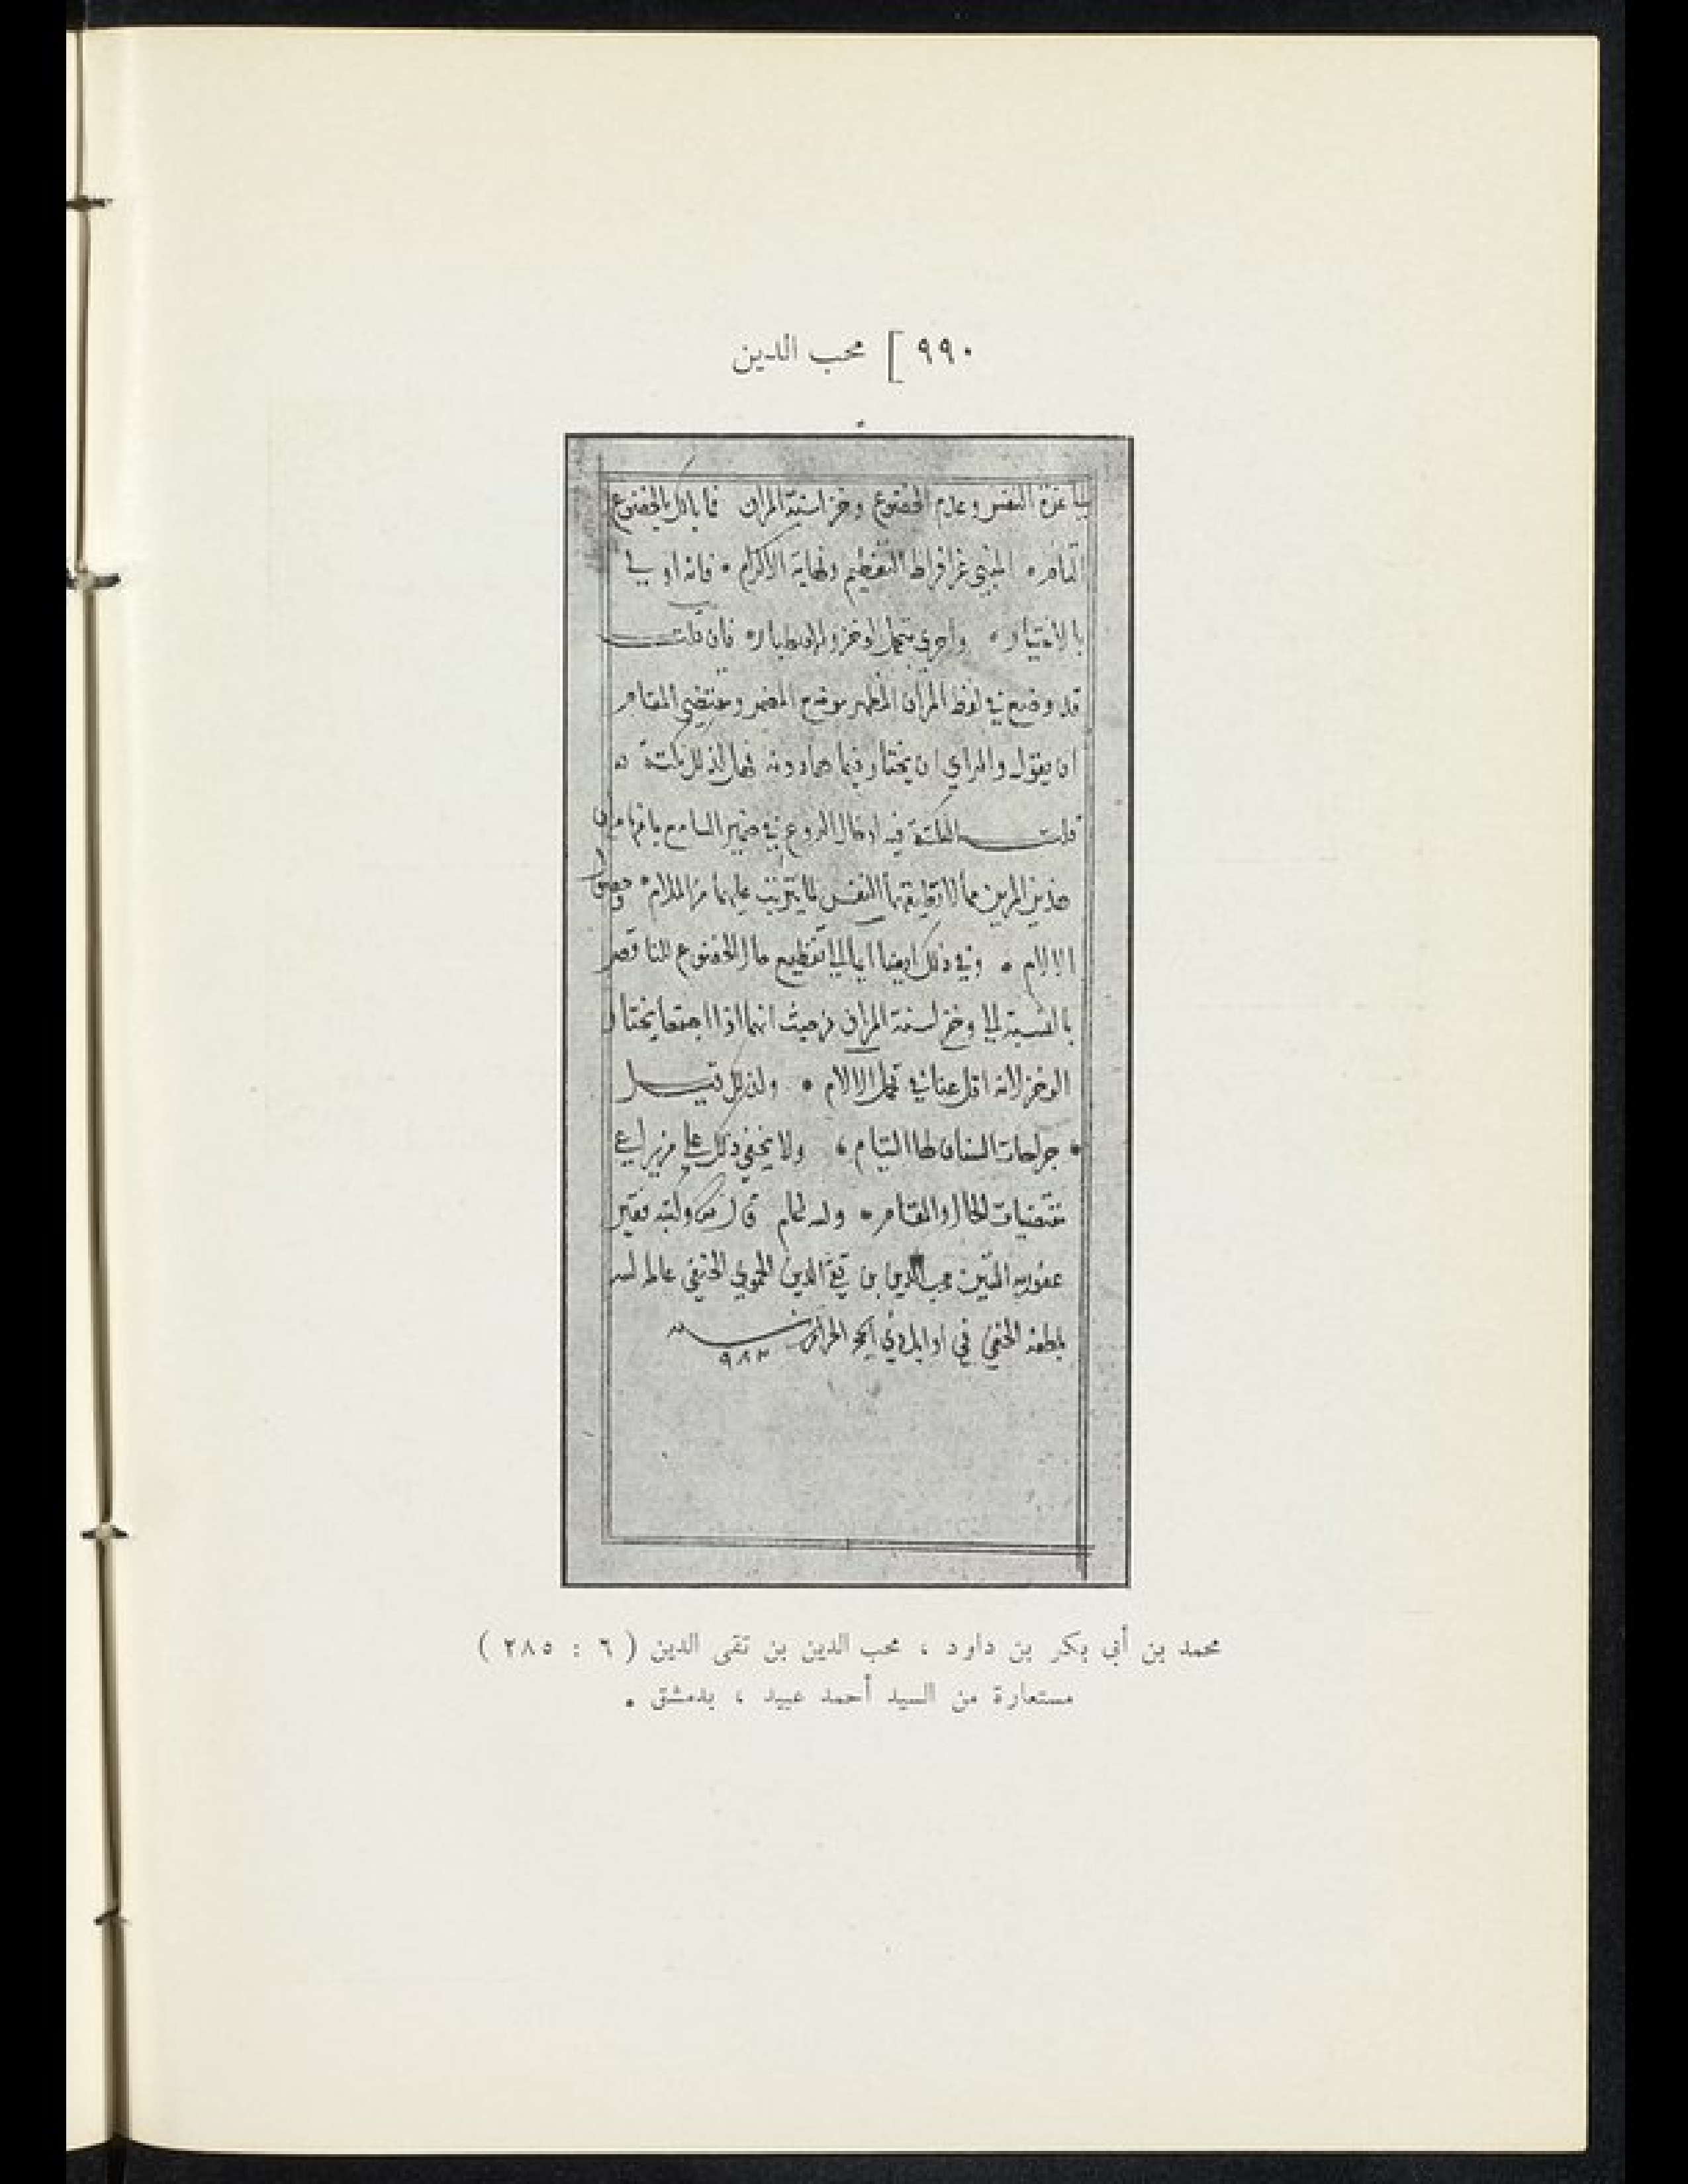 ٩٩٠ ] محب الدين
عزة النفس وعدم الخضوع وخز اسنة المران فما بالك بالخضوع
التام • المنبي عن افراط التعظيم ونهاية الاكرام • فانه اولى
بالاختيار • واحرى بتحمل وخز المران فان قلت
قد وضع في لفظ المران المظهر موضع المضمر ومقتضى المقام
ان يقول والراي ان يختار فيما دونه فهل لذلك نكتة
قلت النكتة فيه ادخال الروع في ضمير السامع
هذين المرين مما لا تطيقهما النفس لما يترتب عليهما من الملام •
الالام • وفي ذلك ايضا ايما الى تعظيم حال الخضوع للناقص
بالنسبة الى وخز اسنة المران من حيث انهما اذا اجتمعا يختار
الوخز لانه اقل عنا في تحمل الالام • ولذلك قيل
• جراحات السنان لها التيام • ولا يخفى ذلك على من يراعي
مقتضيات الحال والمقام • قال وكتبه فقير
عفو ربه المتين محب الدين بن تقي الدين الحموي الحنفي عامله الله
بلطفه الخفي في اوايل ذي الحجة الحرام سنة
٩٨٢
محمد بن أبي بكر بن داود ، محب الدين بن تقى الدين ( ٦ : ٢٨٥ )
مستعارة من السيد أحمد عبيد ، بدمشق .